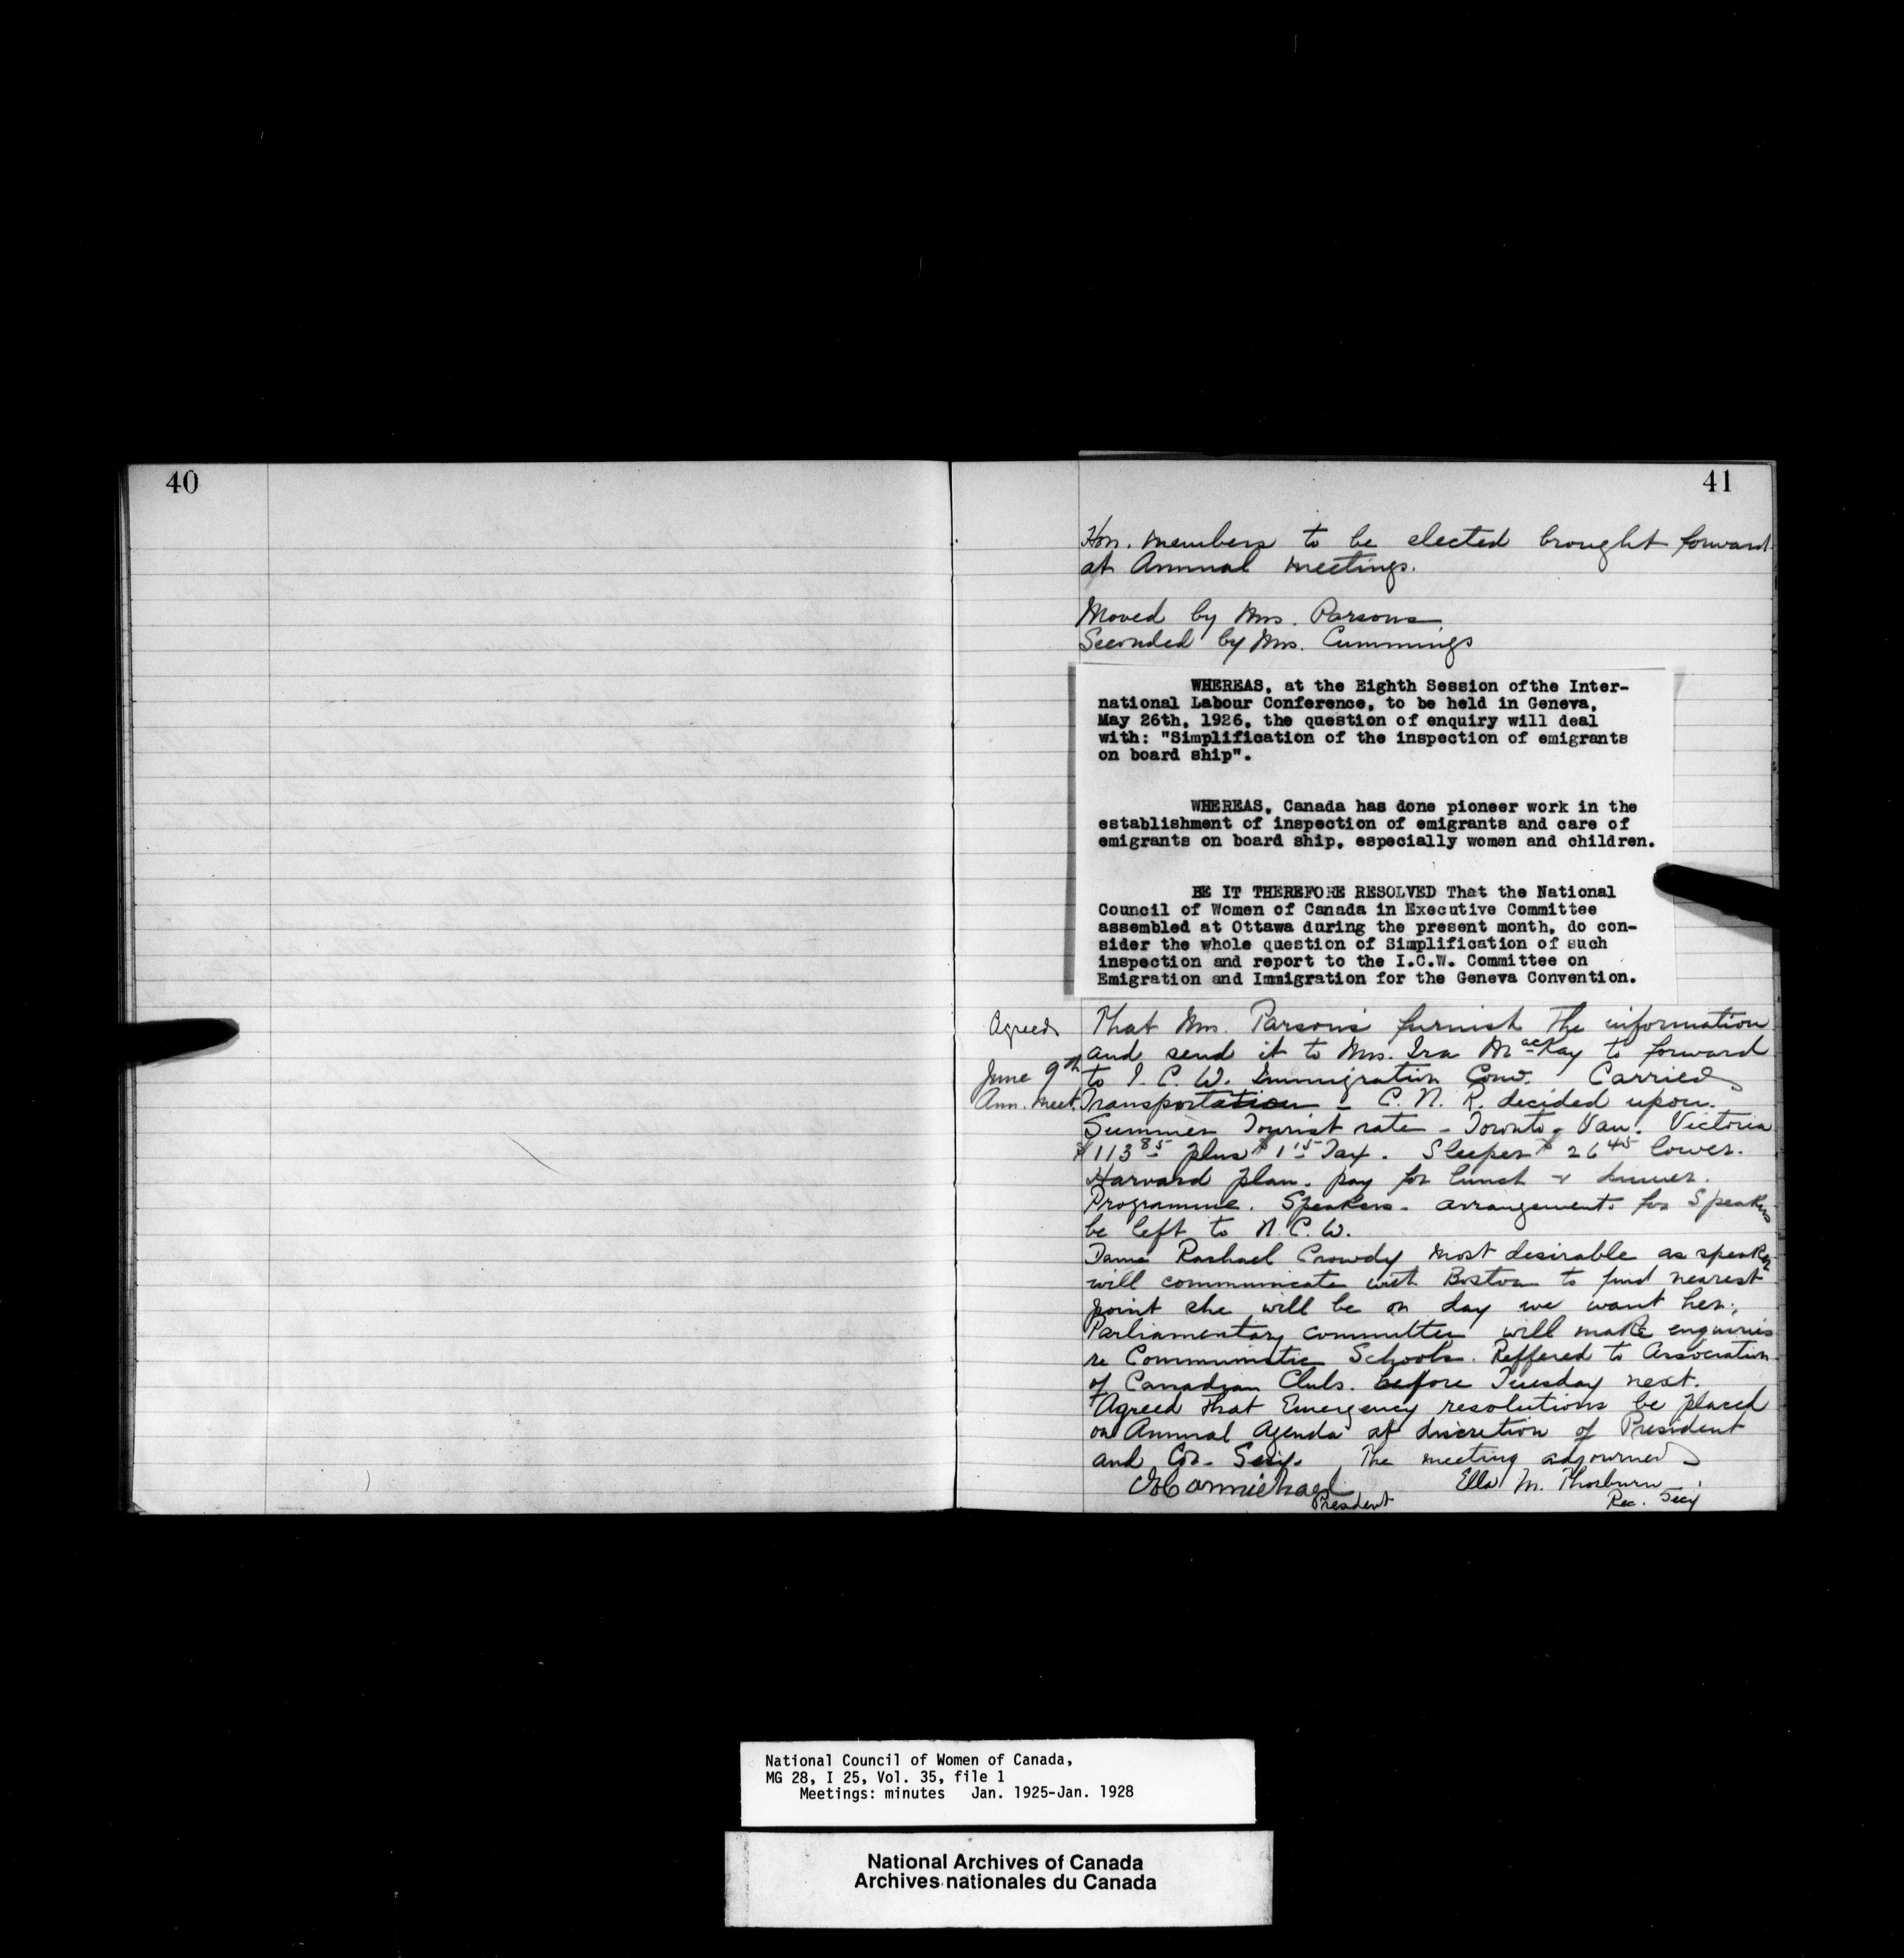 40
41
Hon. members to be elected brought forward
at Annual meetings.
Moved by Mrs. Parsons
Seconded by Mrs. Cummings
WHEREAS, at the Eighth Session ofthe Inter-
national Labour Conference, to be held in Geneva,
May 26th, 1926, the question of enquiry will deal
with: "Simplification of the inspection of emigrants
on board ship".
WHEREAS, Canada has done pioneer work in the
establishment of inspection of emigrants and care of
emigrants on board ship, especially women and children.
BE IT THEREFORE RESOLVED That the National
Council of Women of Canada in Executive Committee
assembled at Ottawa during the present month, do con-
sider the whole question of Simplification of such
inspection and report to the I.C.W. Committee on
Emigration and Immigration for the Geneva Convention.
Agreed That Mrs. Parsons furnish the information
and send it to Mrs. Ira MacKay to forward
June 9th to I. C. W. Immigration Conv. Carried
Ann. Meet. Transportation - C. N. R. decided upon.
Summer Tourist rate - Toronto - Van. Victoria
$113 85 plus $1 15 Tax. Sleeper $26 45 lower.
Harvard plan. pay for lunch & dinner.
Programme. Speakers - arrangements for Speakers
be left to N. C. W.
Dame Rachael Crowdy most desirable as speaker
will communicate with Boston to find nearest
point she will be on day we want her.
Parliamentary committee will make enquiries
re Communistic Schools. Reffered to Association
of Canadian Clubs. before Tuesday next.
Agreed that Emergency resolutions be placed
on Annual Agenda at discretion of President
and Cor. Secy. The meeting adjourned
Carmichael Ella M. Thorburn
President Rec. Secy
National Council of Women of Canada,
MG 28, I 25, Vol. 35, file 1
Meetings: minutes Jan. 1925-Jan. 1928
National Archives of Canada
Archives nationales du Canada